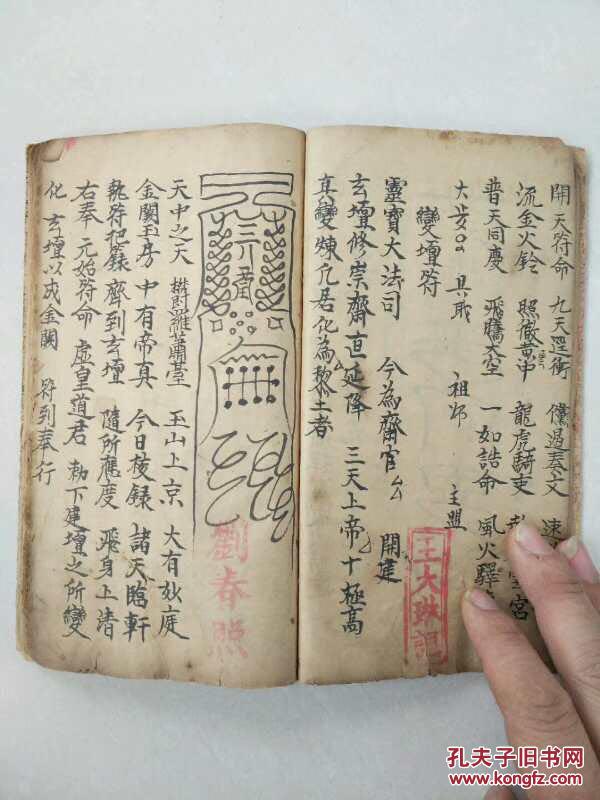 開天符命 九天逕衝 儻過奏文 速
流金火鈴 照徹黄中 龍虎騎吏 宮
普天同慶 飛騰太空 一如誥命 風火驛
大步 具取 祖师 主盟
變壇符
靈寶大法司 今為齋官厶 開建
玄壇修崇齋直延降 三天上帝十極高
真變煉凡居化為 土者
王大珠記
三川君
劉春照
天中之天 欝羅蕭臺 玉山上京 大有妙庭
金闕玉房 中有帝真 今日校錄 諸天臨軒
執符把籙 齊到玄壇 隨所應度 飛身上清
右奉 元始符命 虛皇道君 勅下建壇之所變
化 玄壇以成金闕 符到奉行
孔夫子旧书网
www.kongfz.com